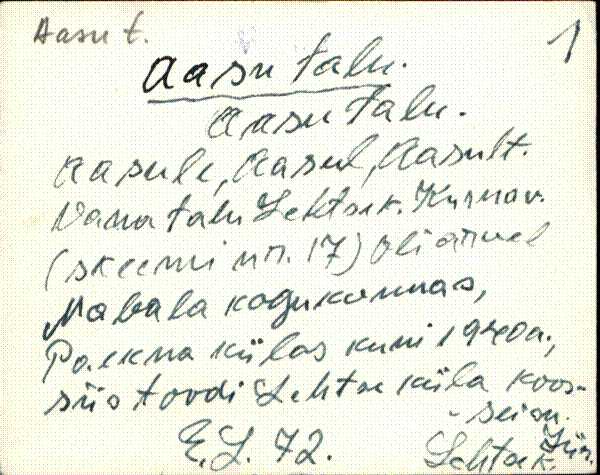 Aasu t.
1
Aasu talu.
Aasu talu.
Aasule, Aasul, Aasult.
Vana talu Lehtse k. Kurnav.
(skeemi nr. 17) Oli
Nabala kogukonnas,
Paekna külas kuni 1940a.,
siis toodi Lehtse küla koos-
seisu.
E.L. 72.
Lehtse k. Jür.